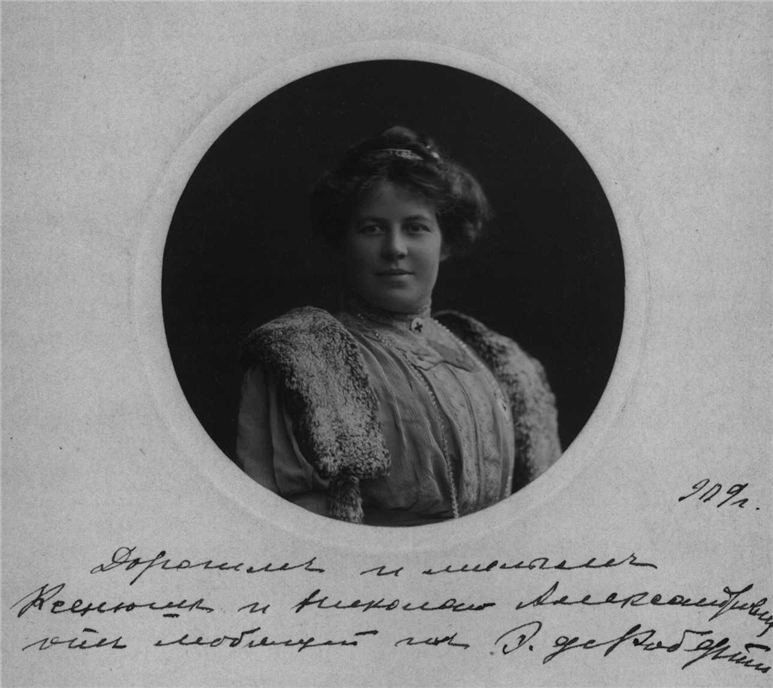 909 г.
Дорогимъ и милымъ
Ксенюшѣ и Николаю Александровичу
отъ любящей ихъ де Роберти